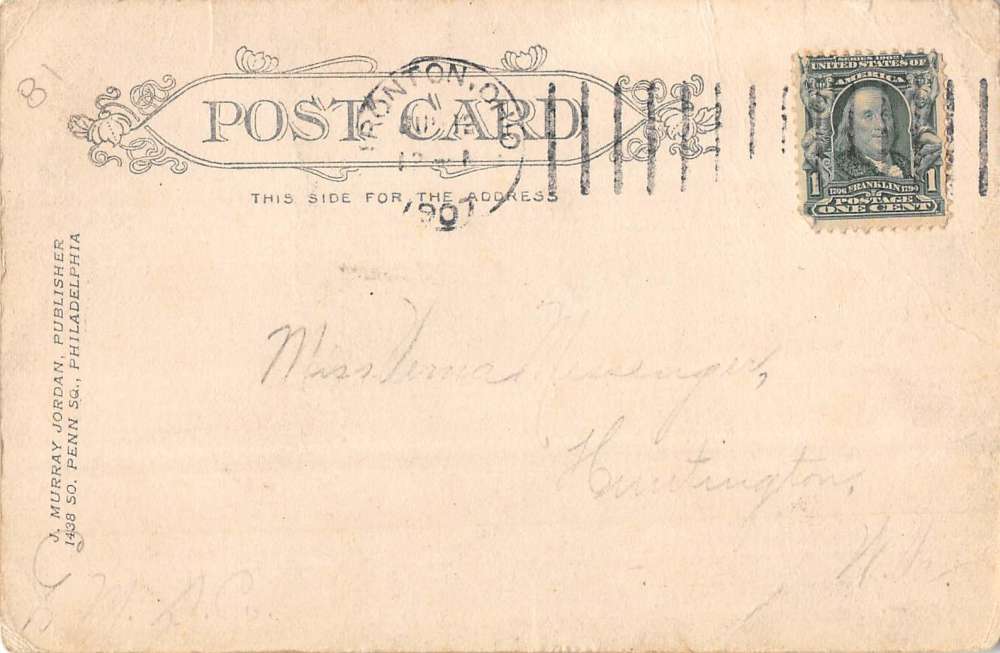 81
POST CARD
IRONTON, OHIO
1907
THIS SIDE FOR THE ADDRESS
SERIES 1902
UNITED STATES OF
AMERICA
1 1706 FRANKLIN 1790 1
POSTAGE
ONE CENT
J. MURRAY JORDAN, PUBLISHER
1438 SO. PENN SQ., PHILADELPHIA
Miss Verna Messenger,
Huntington,